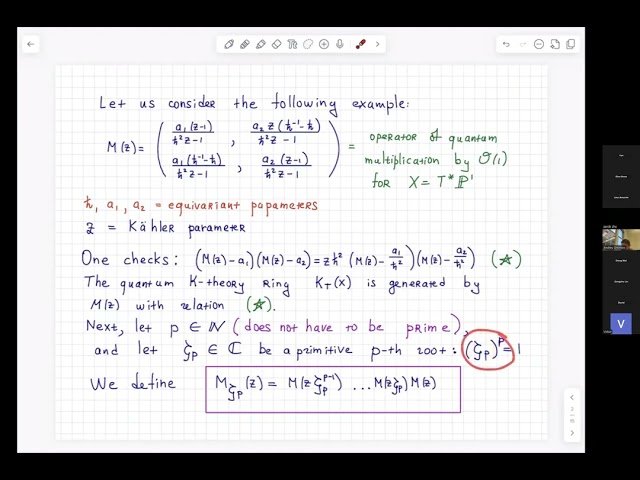 Let us consider the following example:
M(z) = ( a₁(z-1)/ħ²z-1 , a₂z(ħ⁻¹-ħ)/ħ²z-1
a₁(ħ⁻¹-ħ)/ħ²z-1 , a₂(z-1)/ħ²z-1 ) = operator of quantum
multiplication by O(1)
for X = T*ℙ¹
ħ, a₁, a₂ = equivariant papameters
z = Kähler parameter
One checks: (M(z)-a₁)(M(z)-a₂) = zħ²(M(z)-a₁/ħ²)(M(z)-a₂/ħ²) (☆)
The quantum K-theory ring K_T(X) is generated by
M(z) with relation (☆).
Next, let p ∈ ℕ (does not have to be prime),
and let ζₚ ∈ ℂ be a primitive p-th root: (ζₚ)ᵖ = 1
We define M_ζₚ(z) = M(zζₚᵖ⁻¹) ... M(zζₚ)M(z)
V